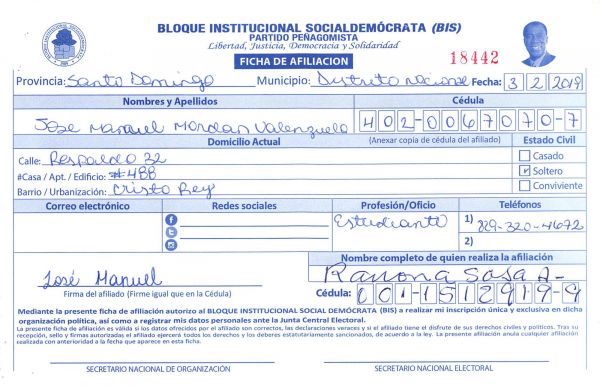 BLOQUE INSTITUCIONAL SOCIALDEMÓCRATA (BIS)
PARTIDO PEÑAGOMISTA
Libertad, Justicia, Democracia y Solidaridad
FICHA DE AFILIACION
18442
Provincia: Santo Domingo Municipio: Distrito nacional Fecha: 3 2 2019
Nombres y Apellidos Cédula
Jose Manuel Mordan Valenzuela 402-0067070-7
Domicilio Actual (Anexar copia de cédula del afiliado) Estado Civil
Calle: Respaldo 32 Casado
#Casa / Apt. / Edificio: #4BB Soltero
Barrio / Urbanización: Cristo Rey Conviviente
Correo electrónico Redes sociales Profesión/Oficio Teléfonos
Estudiante 1) 829-320-4672
2)
Nombre completo de quien realiza la afiliación
José Manuel Ramona Sosa A-
Firma del afiliado (Firme igual que en la Cédula) Cédula: 001-1512919-9
Mediante la presente ficha de afiliación autorizo al BLOQUE INSTITUCIONAL SOCIAL DEMÓCRATA (BIS) a realizar mi inscripción única y exclusiva en dicha
organización política, así como a registrar mis datos personales ante la Junta Central Electoral.
La presente ficha de afiliación es válida si los datos ofrecidos por el afiliado son correctos, las declaraciones veraces y si el afiliado tiene el disfrute de sus derechos civiles y políticos. Tras su
recepción, sello y firmas autorizadas el afiliado ejercerá todos los derechos y los deberes estatutariamente sancionados, de acuerdo a la ley. La presente afiliación anula cualquier afiliación
realizada con anterioridad a la fecha que aparece en esta ficha.
SECRETARIO NACIONAL DE ORGANIZACIÓN SECRETARIO NACIONAL ELECTORAL